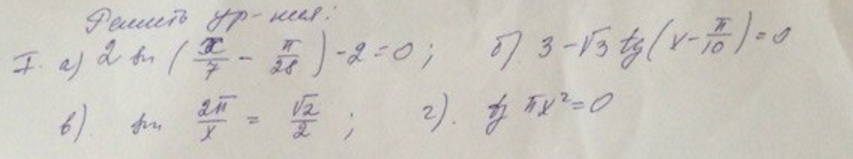 Решить ур-ния:
I. а) 2 sin (x/7 - π/28) - 2 = 0; б) 3 - √3 tg(x - π/10) = 0
в). sin 2π/x = √2/2; г). tg πx² = 0